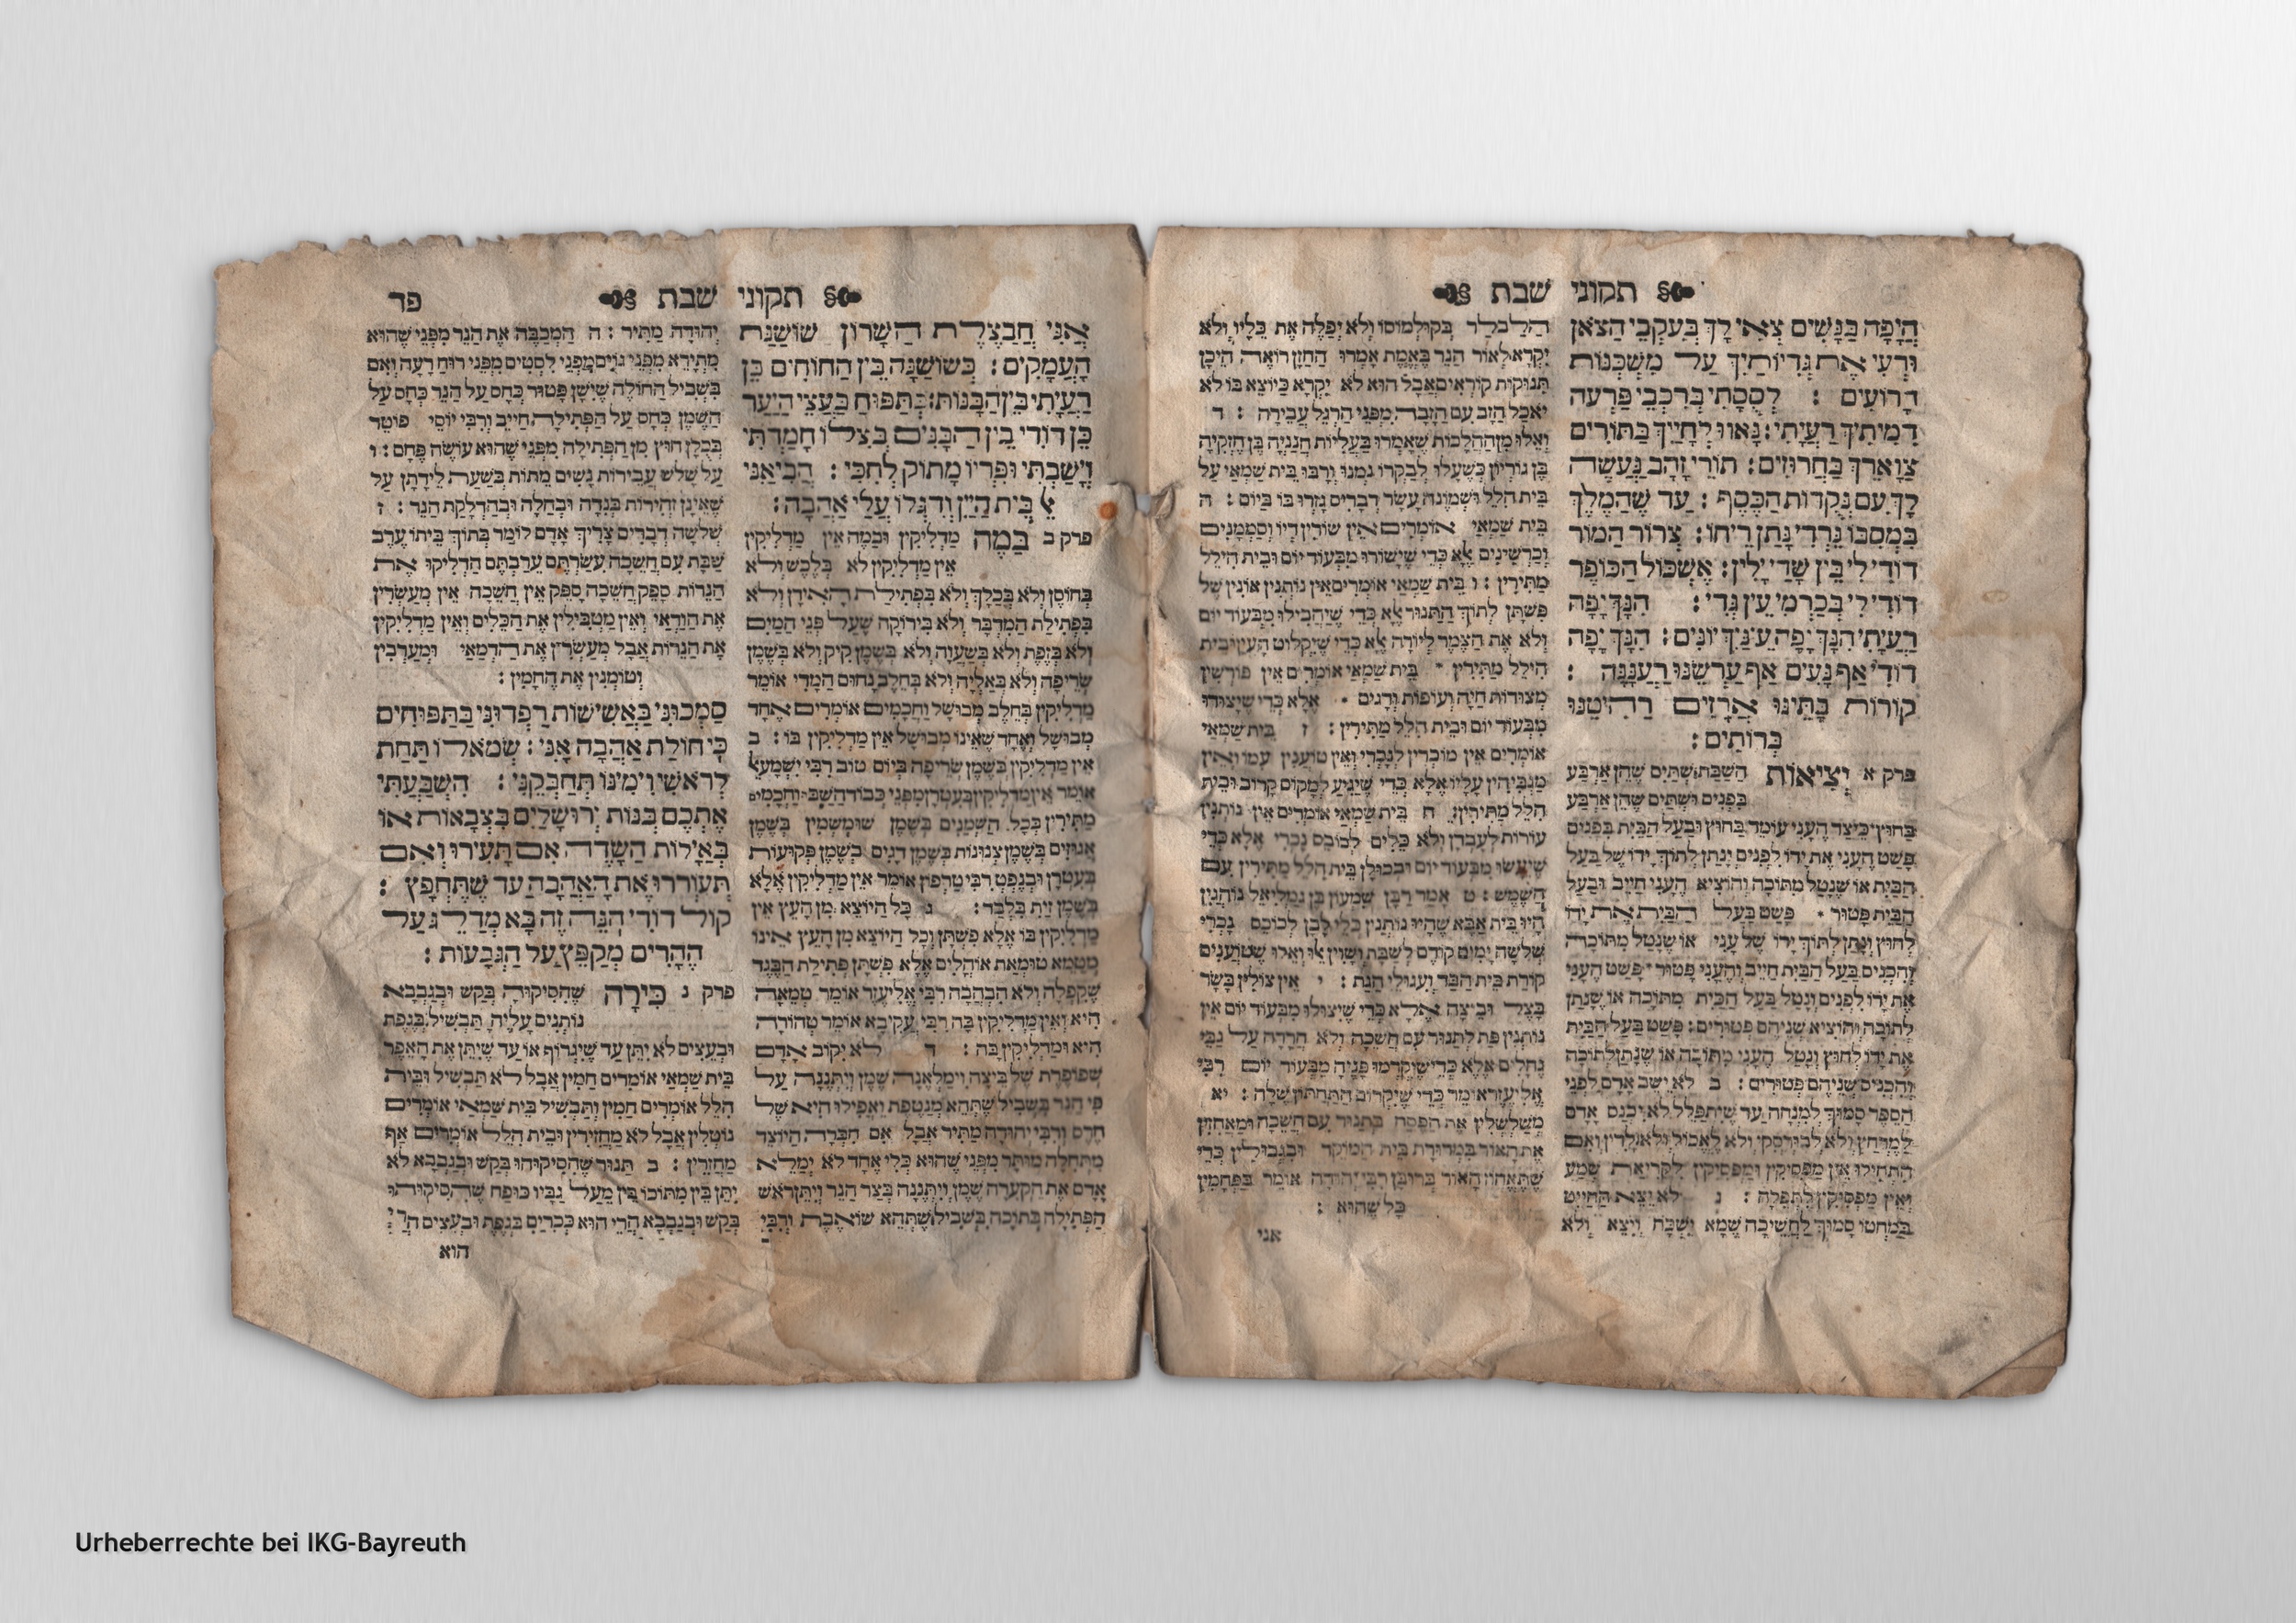 תקוני שבת
היפה בנשים צאי לך בעקבי הצאן
ורעי את גדיותיך על משכנות
הרועים : לסוסתי ברכבי פרעה
דמיתיך רעיתי : נאוו לחייך בתורים
צוארך בחרוזים : תורי זהב נעשה
לך עם נקדות הכסף : עד שהמלך
במסבו נרדי נתן ריחו : צרור המור
דודי לי בין שדי ילין : אשכול הכופר
דודי לי בכרמי עין גדי : הנך יפה
רעיתי הנך יפה עיניך יונים : הנך יפה
דודי אף נעים אף ערשנו רעננה :
קורות בתינו ארזים רהיטנו
ברותים :
פרק א יציאות השבת שתים שהן ארבע
בפנים ושתים שהן ארבע
בחוץ כיצד העני עומד בחוץ ובעל הבית בפנים
פשט העני את ידו לפנים ונתן לתוך ידו של בעל
הבית או שנטל מתוכה והוציא העני חייב ובעל
הבית פטור • פשט בעל הבית את ידו
לחוץ ונתן לתוך ידו של עני או שנטל מתוכה
והכניס בעל הבית חייב והעני פטור • פשט העני
את ידו לפנים ונטל בעל הבית מתוכה או שנתן
לתוכה והוציא שניהם פטורים : פשט בעל הבית
את ידו לחוץ ונטל העני מתוכה או שנתן לתוכה
והכניס שניהם פטורים : ב לא ישב אדם לפני
הספר סמוך למנחה עד שיתפלל לא יכנס אדם
למרחץ ולא לבורסקי ולא לאכול ולא לדין ואם
התחילו אין מפסיקין ומפסיקין לקריאת שמע
ואין מפסיקין לתפלה : ג לא יצא החייט
במחטו סמוך לחשיכה שמא ישכח ויצא ולא
הלבלר בקולמוסו ולא יפלה את כליו ולא
יקרא לאור הנר באמת אמרו החזן רואה היכן
תנוקות קוראים אבל הוא לא יקרא כיוצא בו לא
יאכל הזב עם הזבה מפני הרגל עבירה : ד
ואלו מן ההלכות שאמרו בעליות חנניה בן חזקיה
בן גוריון כשעלו לבקרו נמנו ורבו בית שמאי על
בית הלל ושמונה עשר דברים גזרו בו ביום : ה
בית שמאי אומרים אין שורין דיו וסממנים
וכרשינים אלא כדי שישורו מבעוד יום ובית הילל
מתירין : ו בית שמאי אומרים אין נותנין אונין של
פשתן לתוך התנור אלא כדי שיהבילו מבעוד יום
ולא את הצמר ליורה אלא כדי שיקלוט העין ובית
הילל מתירין • בית שמאי אומרים אין פורשין
מצודות חיה ועופות ודגים • אלא כדי שיצודו
מבעוד יום ובית הלל מתירין : ז בית שמאי
אומרים אין מוכרין לנכרי ואין טוענין עמו ואין
מגביהין עליו אלא כדי שיגיע למקום קרוב ובית
הלל מתירין : ח בית שמאי אומרים אין נותנין
עורות לעבדן ולא כלים לכובס נכרי אלא כדי
שיעשו מבעוד יום ובכולן בית הלל מתירין עם
השמש : ט אמר רבן שמעון בן גמליאל נוהגין
היו בית אבא שהיו נותנין כלי לבן לכובס נכרי
שלשה ימים קודם לשבת ושוין אלו ואלו שטוענים
קורת בית הבד ועגולי הגת : י אין צולין בשר
בצל וביצה אלא כדי שיצולו מבעוד יום אין
נותנין פת לתנור עם חשכה ולא חררה על גבי
גחלים אלא כדי שיקרמו פניה מבעוד יום רבי
אליעזר אומר כדי שיקרום התחתון שלה : יא
משלשלין את הפסח בתנור עם חשכה ומאחיזין
את האור במדורת בית המוקד ובגבולין כדי
שתאחוז האור ברובן רבי יהודה אומר בפחמין
כל שהוא :
אני
תקוני שבת פד
אני חבצלת השרון שושנת
העמקים : כשושנה בין החוחים כן
רעיתי בין הבנות : כתפוח בעצי היער
כן דודי בין הבנים בצלו חמדתי
וישבתי ופריו מתוק לחכי : הביאני
אל בית היין ודגלו עלי אהבה :
פרק ב במה מדליקין ובמה אין מדליקין
אין מדליקין לא בלכש ולא
בחוסן ולא בכלך ולא בפתילת האידן ולא
בפתילת המדבר ולא בירוקה שעל פני המים
ולא בזפת ולא בשעוה ולא בשמן קיק ולא בשמן
שריפה ולא באליה ולא בחלב נחום המדי אומר
מדליקין בחלב מבושל וחכמים אומרים אחד
מבושל ואחד שאינו מבושל אין מדליקין בו : ב
אין מדליקין בשמן שריפה ביום טוב רבי ישמעאל
אומר אין מדליקין בעטרן מפני כבוד השבת וחכמים
מתירין בכל השמנים בשמן שומשמין בשמן
אגוזים בשמן צנונות בשמן דגים בשמן פקועות
בעטרן ובנפט רבי טרפון אומר אין מדליקין אלא
בשמן זית בלבד : ג כל היוצא מן העץ אין
מדליקין בו אלא פשתן וכל היוצא מן העץ אינו
מטמא טומאת אוהלים אלא פשתן פתילת הבגד
שקפלה ולא הבהבה רבי אליעזר אומר טמאה
היא ואין מדליקין בה רבי עקיבא אומר טהורה
היא ומדליקין בה : ד לא יקוב אדם
שפופרת של ביצה וימלאנה שמן ויתננה על
פי הנר בשביל שתהא מנטפת ואפילו היא של
חרס ורבי יהודה מתיר אבל אם חברה היוצר
מתחלה מותר מפני שהוא כלי אחד לא ימלא
אדם את הקערה שמן ויתננה בצד הנר ויתן ראש
הפתילה בתוכה בשביל שתהא שואבת ורבי
יהודה מתיר : ה המכבה את הנר מפני שהוא
מתירא מפני גוים מפני לסטים מפני רוח רעה ואם
בשביל החולה שיישן פטור כחס על הנר כחס על
השמן כחס על הפתילה חייב ורבי יוסי פוטר
בכולן חוץ מן הפתילה מפני שהוא עושה פחם : ו
על שלש עבירות נשים מתות בשעת לידתן על
שאינן זהירות בנדה ובחלה ובהדלקת הנר : ז
שלשה דברים צריך אדם לומר בתוך ביתו ערב
שבת עם חשכה עשרתם ערבתם הדליקו את
הנרות ספק חשכה ספק אין חשכה אין מעשרין
את הודאי ואין מטבילין את הכלים ואין מדליקין
את הנרות אבל מעשרין את הדמאי ומערבין
וטומנין את החמין :
סמכוני באשישות רפדוני בתפוחים
כי חולת אהבה אני : שמאלו תחת
לראשי וימינו תחבקני : השבעתי
אתכם בנות ירושלים בצבאות או
באילות השדה אם תעירו ואם
תעוררו את האהבה עד שתחפץ :
קול דודי הנה זה בא מדלג על
ההרים מקפץ על הגבעות :
פרק ג כירה שהסיקוה בקש ובגבבא
נותנים עליה תבשיל בגפת
ובעצים לא יתן עד שיגרוף או עד שיתן את האפר
בית שמאי אומרים חמין אבל לא תבשיל ובית
הלל אומרים חמין ותבשיל בית שמאי אומרים
נוטלין אבל לא מחזירין ובית הלל אומרים אף
מחזרין : ב תנור שהסיקוהו בקש ובגבבא לא
יתן בין מתוכו בין מעל גביו כופח שהסיקוהו
בקש ובגבבא הרי הוא ככרים בגפת ובעצים הרי
הוא
Urheberrechte bei IKG-Bayreuth